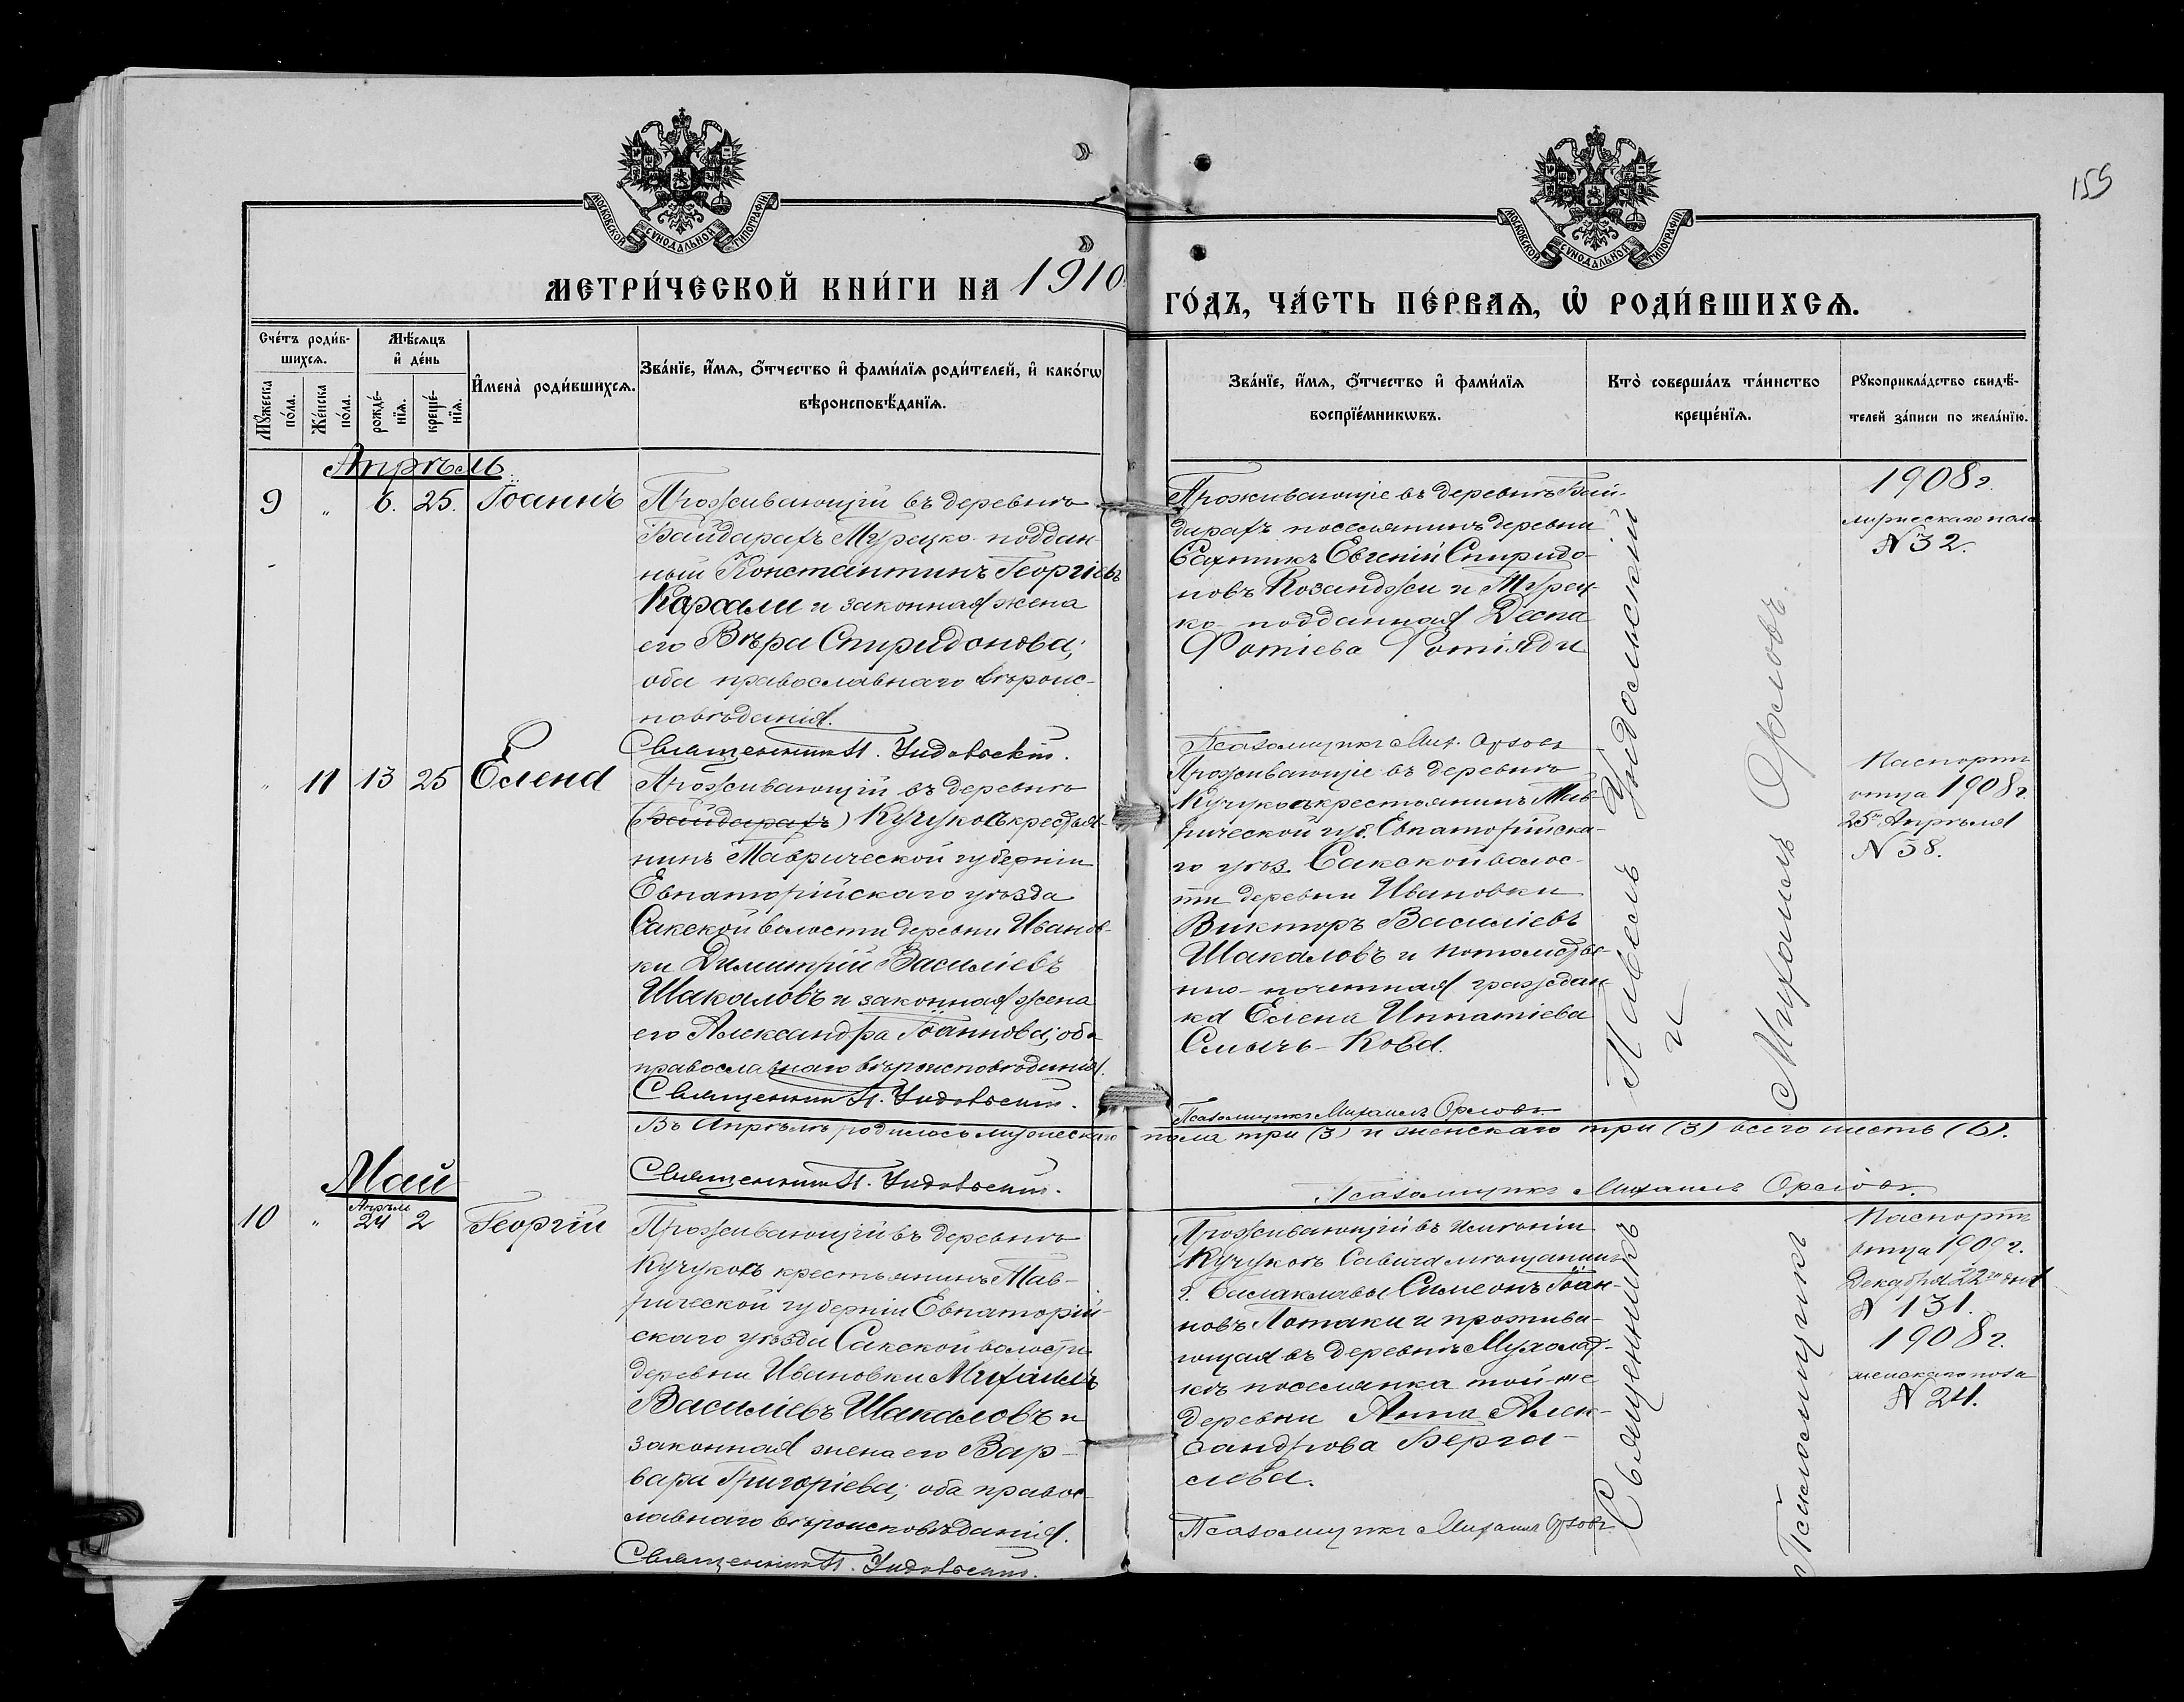 155
МОСКОВСКОЙ СУНОДАЛЬНОЙ ТИПОГРАФІИ
МОСКОВСКОЙ СУНОДАЛЬНОЙ ТИПОГРАФІИ
МЕТРИ́ЧЕСКОЙ КНИ́ГИ НА 1910
ГО́ДЪ, ЧА́СТЬ ПЕ́РВАѦ, Ѡ РОДИ́ВШИХСѦ.
Сче́тъ роди́в-
шихсѧ.
Мꙋжеска по́ла.
Же́нска по́ла.
Мѣ́сѧцъ
и҆ де́нь
рожде́-
нїѧ.
креще́-
нїѧ.
И҆мена̀ роди́вшихсѧ.
Зва́нїе, и҆́мѧ, ѻ҆́тчество и҆ фами́лїѧ роди́телей, и҆ како́гѡ
вѣроисповѣ́данїѧ.
Зва́нїе, и҆́мѧ, ѻ҆́тчество и҆ фами́лїѧ
воспрїе́мникѡвъ.
Кто̀ соверша́лъ та́инство
креще́нїѧ.
Рꙋкоприкла́дство свидѣ́-
телей за́писи по жела́нїю.
Апрѣль
9 " 6. 25. Іоаннъ
Проживающій въ деревнѣ
Байдарахъ Турецко поддан-
ный Константинъ Георгіевъ
Карали и законная жена
его Вѣра Спиридонова;
оба православнаго вѣроис-
повѣданія.
Священникъ П. Ундольскій.
Проживающіе въ деревнѣ Бай-
дарахъ поселянинъ деревни
Сахтикъ Евгеній Спиридо-
новъ Козанджи и Турец-
ко-подданная Деспа
Фотіева Фотіяди
Псаломщикъ Мих. Орловъ
1908 г.
мужескаго пола
№ 32.
" 11 13 25 Елена
Проживающій въ деревнѣ
(Байдарахъ) Кучукой крестья-
нинъ Таврической губерніи
Евпаторійскаго уѣзда
Сакской волости деревни Иванов-
ки Димитрій Василіевъ
Шакаловъ и законная жена
его Александра Іоаннова; оба
православнаго вѣроисповѣданія.
Священникъ П. Ундольскій.
Проживающіе въ деревнѣ
Кучукоѣ крестьянинъ Тав-
рической губ. Евпаторійска-
го уѣз. Сакской волос-
ти деревни Ивановки
Викторъ Василіевъ
Шакаловъ и потомствен-
но-почетная граждан-
ка Елена Ипатіева
Псаломщикъ Михаилъ Орловъ
Паспортъ
отца 1908 г.
25го Апрѣля
№ 58.
Въ Апрѣлѣ родилось мужескаго пола три (3) и женскаго три (3) всего шесть (6).
Священникъ П. Ундольскій.
Псаломщикъ Михаилъ Орловъ.
Май
Апрѣль
10 " 24 2 Георгій
Проживающій въ деревнѣ
Кучукоѣ крестьянинъ Тав-
рической губерніи Евпаторій-
скаго уѣзда Сакской волости
деревни Ивановки Михаилъ
Василіевъ Шакаловъ и
законная жена его Вар-
вара Григоріева; оба правос-
лавнаго вѣроисповѣданія.
Священникъ П. Ундольскій.
Проживающій въ имѣніи
Кучукоѣ Савича мѣщанинъ
г. Балаклавы Симеонъ Іоан-
новъ Потаки и прожива-
ющая въ деревнѣ Мухолат-
кѣ поселянка той-же
деревни Анна Алек-
сандрова
Псаломщикъ Михаилъ Орловъ
Паспортъ
отца 1909 г.
Декабря 22го дня
№ 131.
1908 г.
женскаго пола
№ 24.
Священникъ Павелъ Ундольскій
и
Псаломщикъ Михаилъ Орловъ.